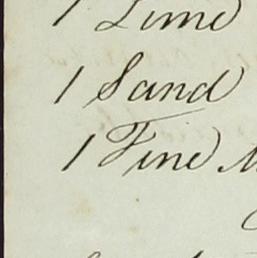 1 Lime
1 Sand
1 Fine